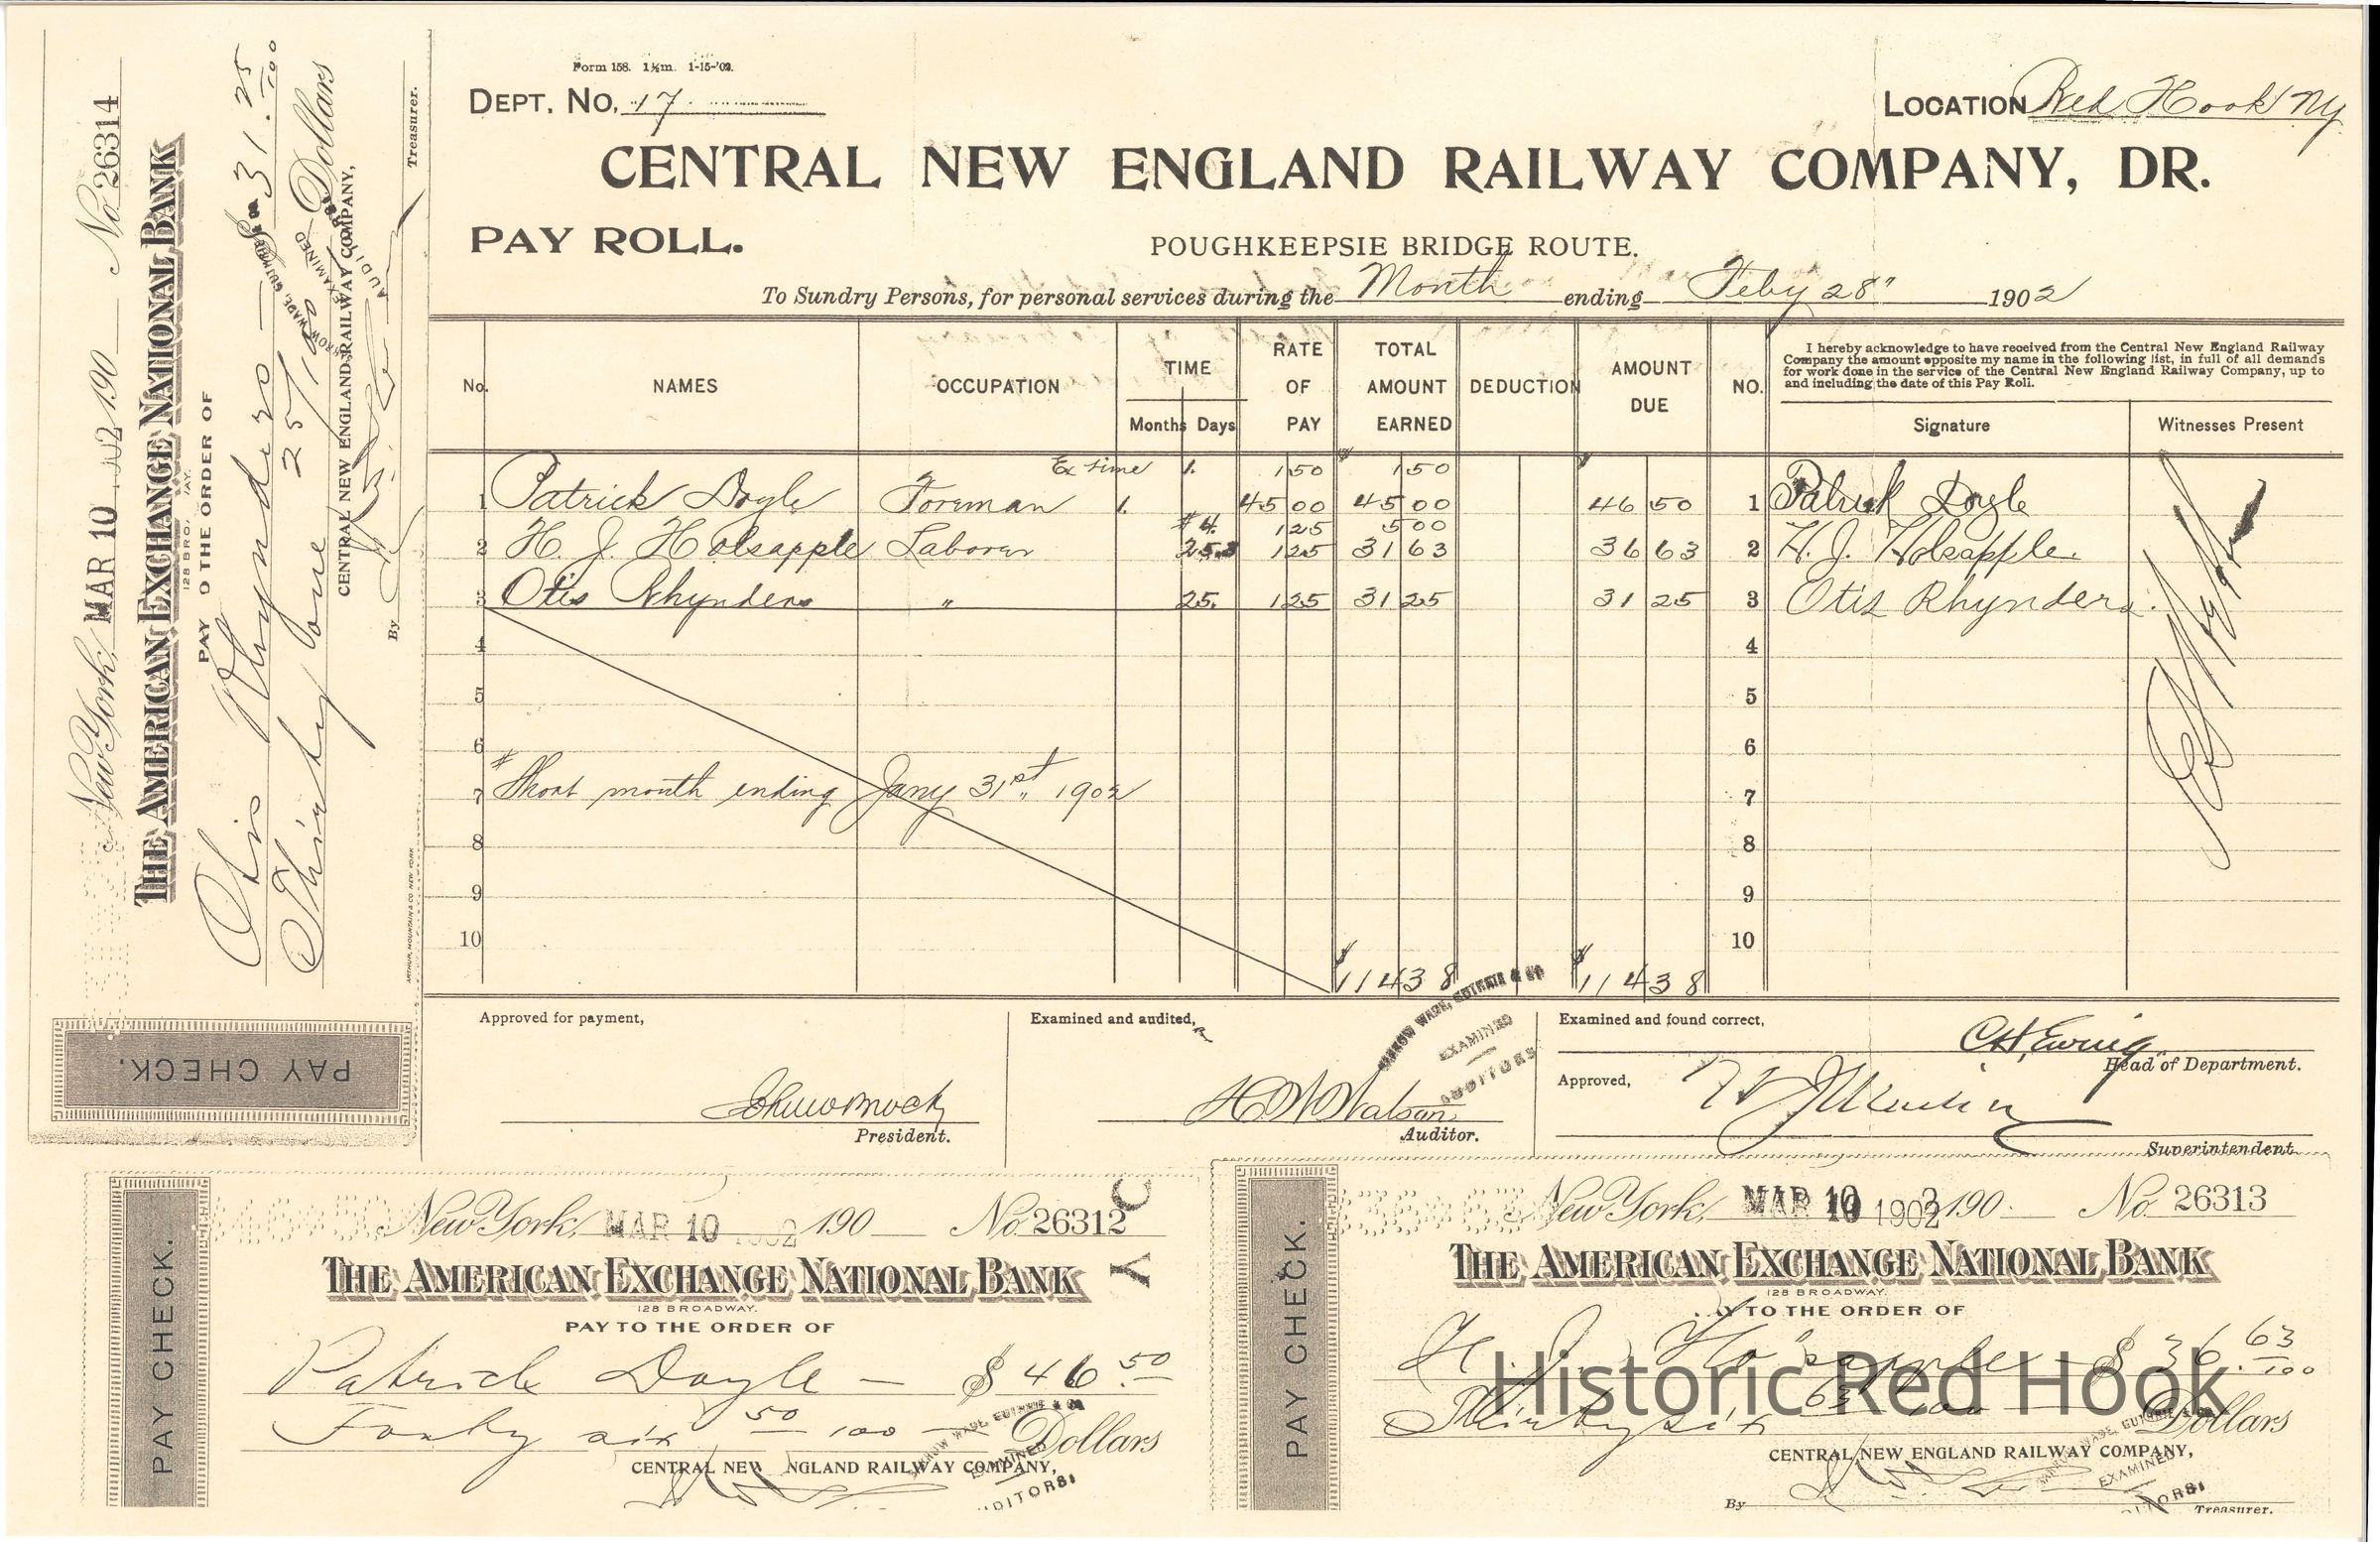 Form 158. 1½m. 1-15-'02.
DEPT. NO. 17
LOCATION Red Hook NY
CENTRAL NEW ENGLAND RAILWAY COMPANY, DR.
PAY ROLL.
POUGHKEEPSIE BRIDGE ROUTE.
To Sundry Persons, for personal services during the Month ending Feby 28" 1902
No. NAMES OCCUPATION TIME Months Days RATE OF PAY TOTAL AMOUNT EARNED DEDUCTION AMOUNT DUE NO.
I hereby acknowledge to have received from the Central New England Railway
Company the amount opposite my name in the following list, in full of all demands
for work done in the service of the Central New England Railway Company, up to
and including the date of this Pay Roll.
Signature Witnesses Present
Ex time 1. 1 50 $ 1 50 $
1 Patrick Doyle Foreman 1. 45 00 45 00 46 50 1 Patrick Doyle
#4. 1 25 5 00
2 H. J. Holsapple Laborer 25.3 1 25 31 63 36 63 2 H. J. Holsapple
3 Otis Rhynders " 25. 1 25 31 25 31 25 3 Otis Rhynders
4 4
5 5
6 6
7 # Short month ending Jany 31st, 1902 7
8 8
9 9
10 10
$114 38 $114 38
Approved for payment,
President.
Examined and audited,
H W Watson
Auditor.
BARROW WADE, GUTHRIE & CO
EXAMINED
AUDITORS
Examined and found correct,
C H Ewing
Head of Department.
Approved,
Superintendent.
New York, MAR 10 1902 190 No. 26314
THE AMERICAN EXCHANGE NATIONAL BANK
128 BROADWAY.
PAY TO THE ORDER OF
Otis Rhynders $ 31.25/100
Thirty one 25/100 Dollars
CENTRAL NEW ENGLAND RAILWAY COMPANY,
By Treasurer.
ARTHUR, MOUNTAIN & CO. NEW YORK
PAY CHECK.
PAY CHECK.
New York, MAR 10 1902 190 No. 26312
THE AMERICAN EXCHANGE NATIONAL BANK
128 BROADWAY.
PAY TO THE ORDER OF
Patrick Doyle $ 46.50
Forty six 50/100 Dollars
CENTRAL NEW ENGLAND RAILWAY COMPANY,
PAY CHECK.
New York, MAR 10 1902 190 No. 26313
THE AMERICAN EXCHANGE NATIONAL BANK
128 BROADWAY.
Y TO THE ORDER OF
H. J. Holsapple $ 36.63/100
Thirty six 63/100 Dollars
CENTRAL NEW ENGLAND RAILWAY COMPANY,
By Treasurer.
Historic Red Hook